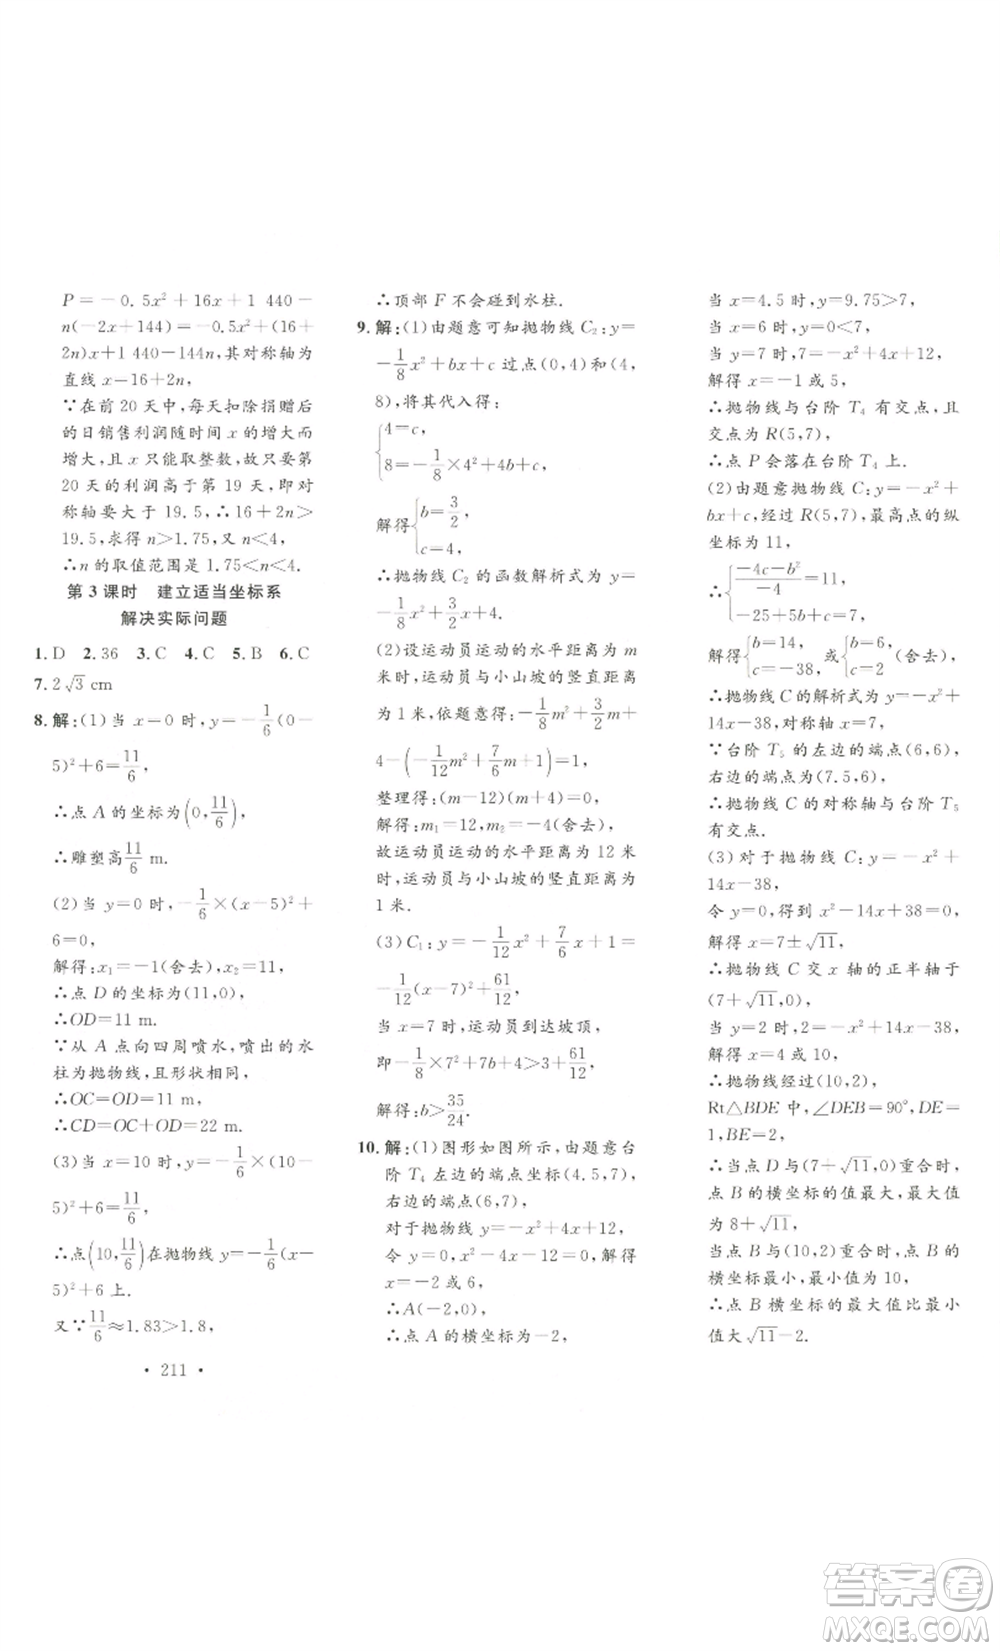 P=-0.5x²+16x+1 440-
n(-2x+144)=-0.5x²+(16+
2n)x+1 440-144n,其对称轴为
直线 x=16+2n,
∵在前 20 天中,每天扣除捐赠后
的日销售利润随时间 x 的增大而
增大,且 x 只能取整数,故只要第
20 天的利润高于第 19 天,即对
称轴要大于 19.5,∴16+2n>
19.5,求得 n>1.75,又 n<4,
∴n 的取值范围是 1.75<n<4.
第 3 课时 建立适当坐标系
解决实际问题
1.D 2.36 3.C 4.C 5.B 6.C
7.2√3 cm
8.解:(1)当 x=0 时,y=-1/6(0-
5)²+6=11/6,
∴点 A 的坐标为(0,11/6),
∴雕塑高 11/6 m.
(2)当 y=0 时,-1/6×(x-5)²+
6=0,
解得:x₁=-1(舍去),x₂=11,
∴点 D 的坐标为(11,0),
∴OD=11 m.
∵从 A 点向四周喷水,喷出的水
柱为抛物线,且形状相同,
∴OC=OD=11 m,
∴CD=OC+OD=22 m.
(3)当 x=10 时,y=-1/6×(10-
5)²+6=11/6,
∴点(10,11/6)在抛物线 y=-1/6(x-
5)²+6 上.
又∵11/6≈1.83>1.8,
· 211 ·
∴顶部 F 不会碰到水柱.
9.解:(1)由题意可知抛物线 C₂:y=
-1/8x²+bx+c 过点(0,4)和(4,
8),将其代入得:
{4=c,
8=-1/8×4²+4b+c,
解得{b=3/2,
c=4,
∴抛物线 C₂ 的函数解析式为
y=-1/8x²+3/2x+4.
(2)设运动员运动的水平距离为 m
米时,运动员与小山坡的竖直距离
为 1 米,依题意得:-1/8m²+3/2m+
4-(-1/12m²+7/6m+1)=1,
整理得:(m-12)(m+4)=0,
解得:m₁=12,m₂=-4(舍去),
故运动员运动的水平距离为 12 米
时,运动员与小山坡的竖直距离为
1 米.
(3)C₁:y=-1/12x²+7/6x+1=
-1/12(x-7)²+61/12,
当 x=7 时,运动员到达坡顶,
即-1/8×7²+7b+4>3+61/12,
解得:b>35/24.
10.解:(1)图形如图所示,由题意台
阶 T₄ 左边的端点坐标(4.5,7),
右边的端点(6,7),
对于抛物线 y=-x²+4x+12,
令 y=0,x²-4x-12=0,解得
x=-2 或 6,
∴A(-2,0),
∴点 A 的横坐标为-2,
当 x=4.5 时,y=9.75>7,
当 x=6 时,y=0<7,
当 y=7 时,7=-x²+4x+12,
解得 x=-1 或 5,
∴抛物线与台阶 T₄ 有交点,且
交点为 R(5,7),
∴点 P 会落在台阶 T₄ 上.
(2)由题意抛物线 C:y=-x²+
bx+c,经过 R(5,7),最高点的纵
坐标为 11,
∴{(-4c-b²)/-4=11,
-25+5b+c=7,
解得{b=14,
c=-38,或{b=6,
c=2(舍去),
∴抛物线 C 的解析式为 y=-x²+
14x-38,对称轴 x=7,
∵台阶 T₅ 的左边的端点(6,6),
右边的端点为(7.5,6),
∴抛物线 C 的对称轴与台阶 T₅
有交点.
(3)对于抛物线 C:y=-x²+
14x-38,
令 y=0,得 x²-14x+38=0,
解得 x=7±√11,
∴抛物线 C 交 x 轴的正半轴于
(7+√11,0),
当 y=2 时,2=-x²+14x-38,
解得 x=4 或 10,
∴抛物线经过(10,2),
Rt△BDE 中,∠DEB=90°,DE=
1,BE=2,
∴当点 D 与(7+√11,0)重合时,
点 B 的横坐标的值最大,最大值
为 8+√11,
当点 B 与(10,2)重合时,点 B 的
横坐标最小,最小值为 10,
∴点 B 横坐标的最大值比最小
值大√11-2.
答案圈
MXQE.COM